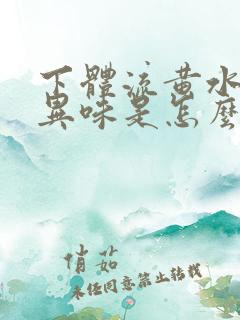 下體流黃水
異味是怎麼
俏茹
未經同意禁止轉載